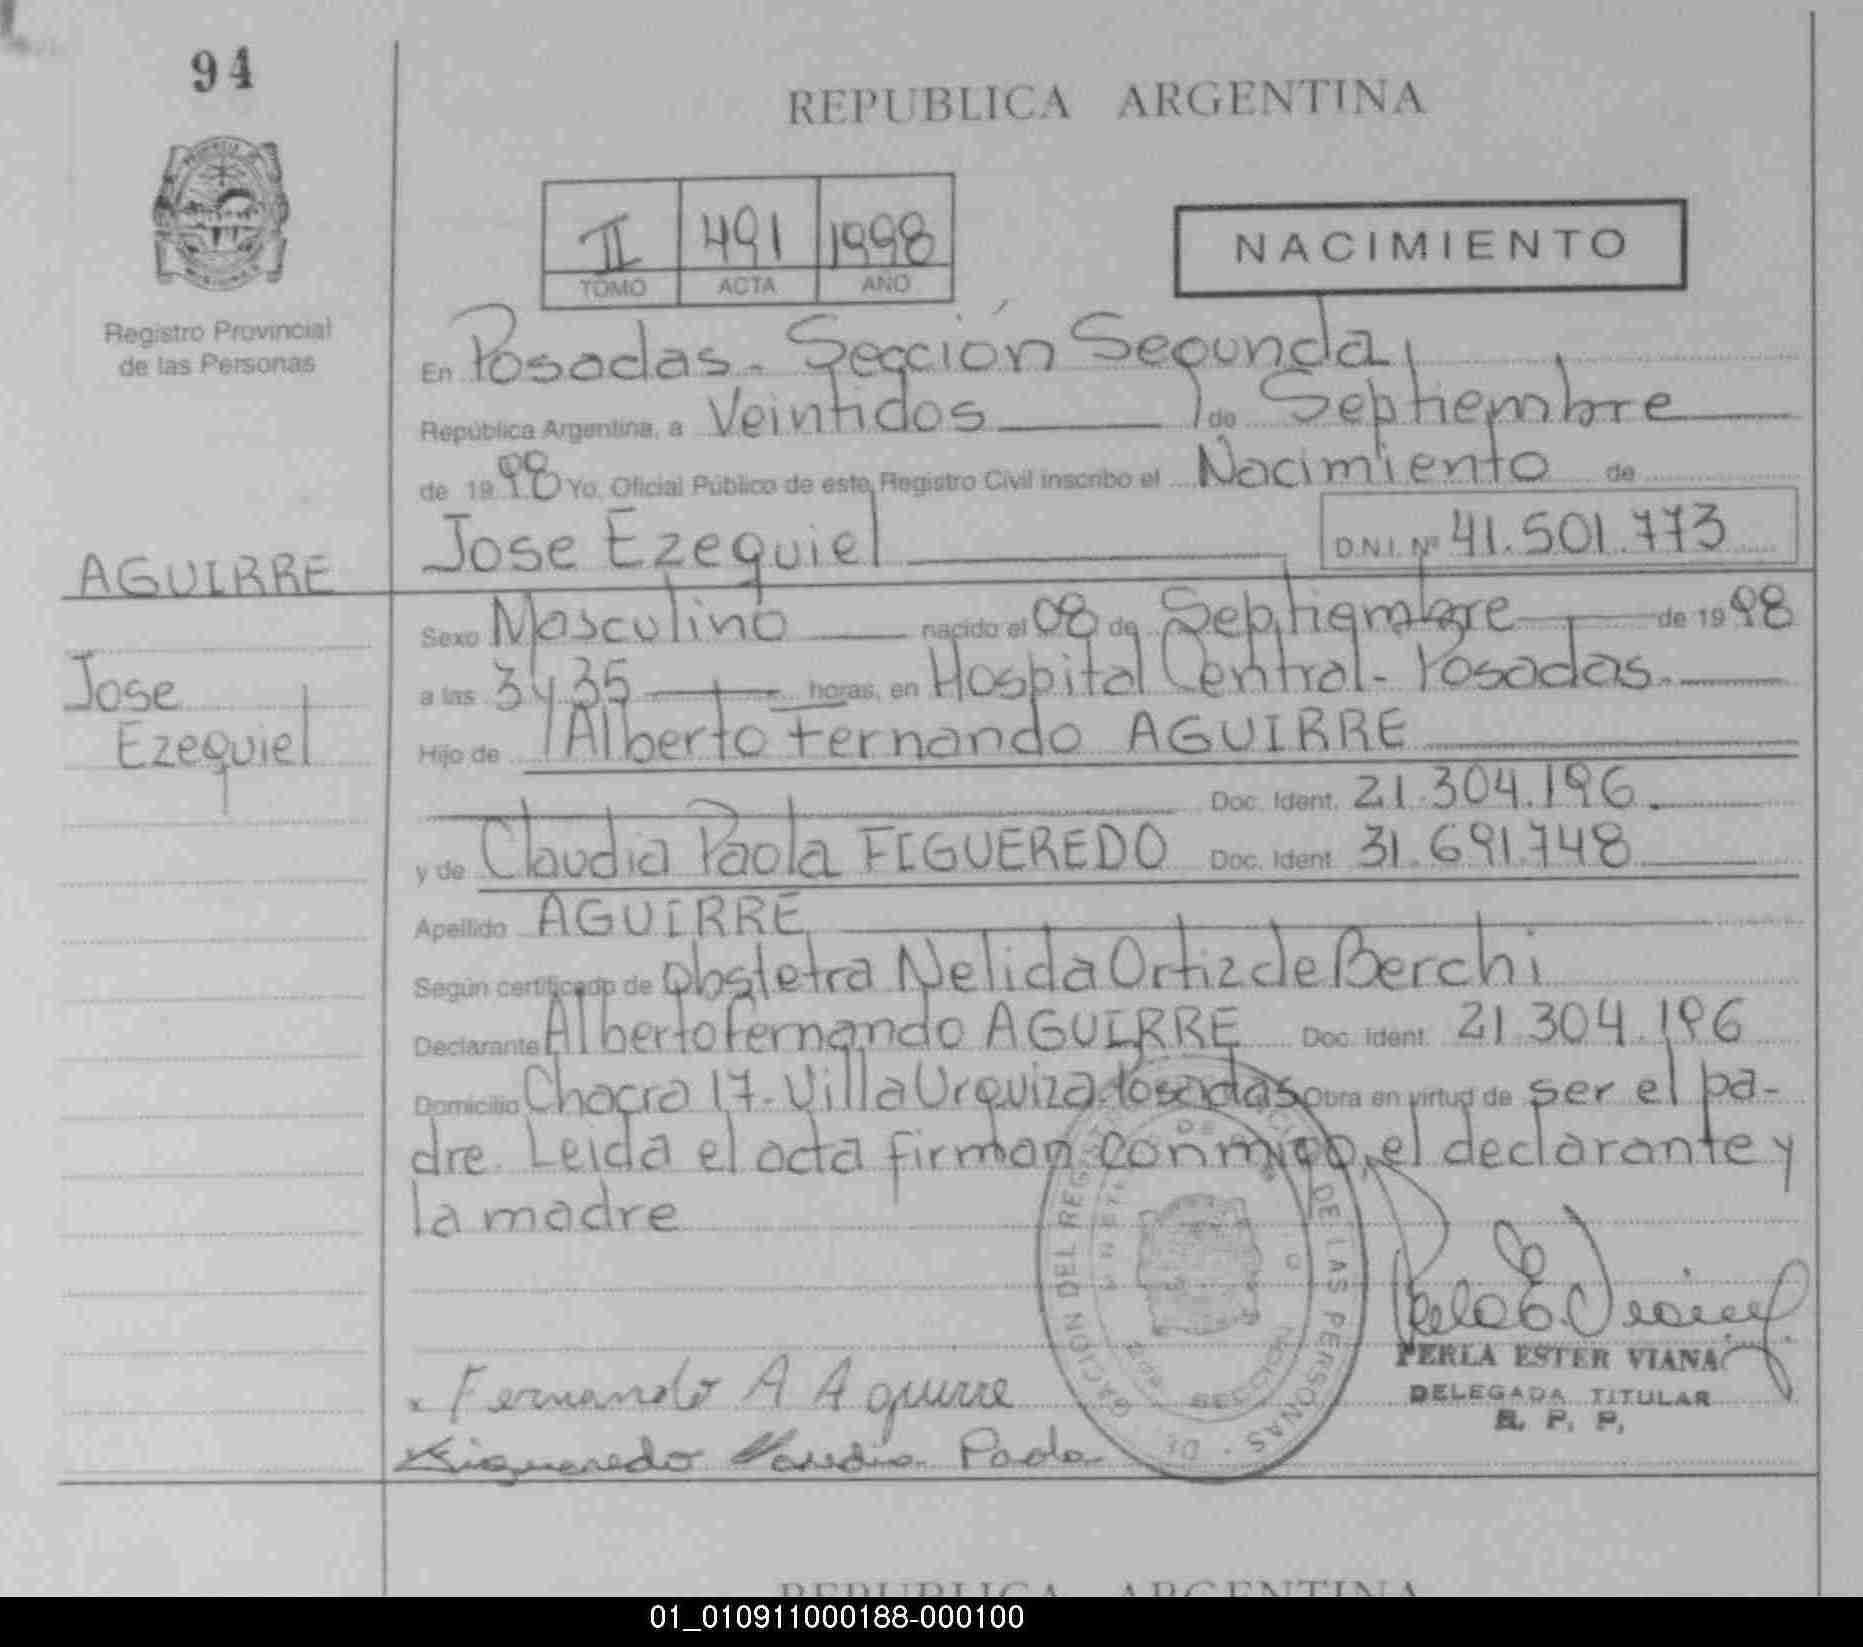 94
REPUBLICA ARGENTINA
II 491 1998
TOMO ACTA AÑO
NACIMIENTO
Registro Provincial
de las Personas
En Posadas - Sección Segunda,
República Argentina, a Veintidos de Septiembre
de 1998 Yo, Oficial Público de este Registro Civil inscribo el Nacimiento de
Jose Ezequiel D.N.I. Nº 41.501.773
AGUIRRE
Sexo Masculino nacido el 08 de Septiembre de 1998
Jose
a las 3 y 35 horas, en Hospital Central - Posadas.
Ezequiel
Hijo de Alberto Fernando AGUIRRE
Doc. Ident. 21.304.196
y de Claudia Paola FIGUEREDO Doc. Ident. 31.691.748
Apellido AGUIRRE
Según certificado de obstetra Nelida Ortiz de Berchi
Declarante Alberto Fernando AGUIRRE Doc. Ident. 21.304.196
Domicilio Chacra 17 - Villa Urquiza - Posadas Obra en virtud de ser el pa-
dre. Leida el acta firman conmigo, el declarante y
la madre
PERLA ESTER VIANA
DELEGADA TITULAR
R. P. P.
Fernando A Aguirre
Figueredo Claudia Paola
REPUBLICA ARGENTINA
01_010911000188-000100